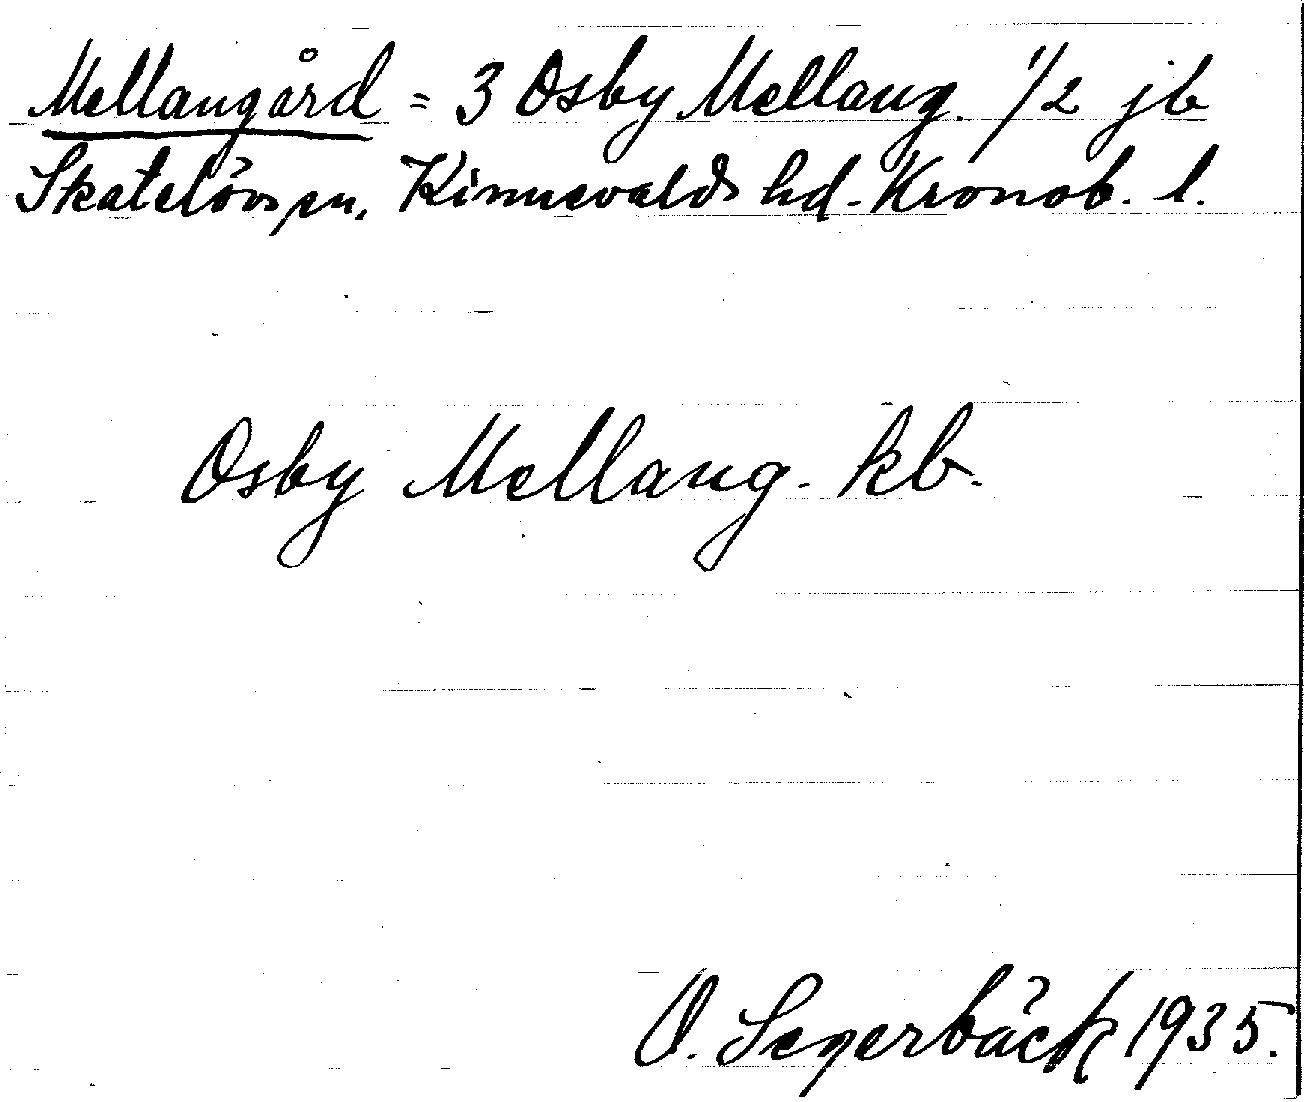 Mellangård = 3 Osby Mellang. 1/2 jb
Skatelövs sn. Kinnevalds hd. Kronob. l.
Osby Mellang. kb.
O. Segerbäck 1935.